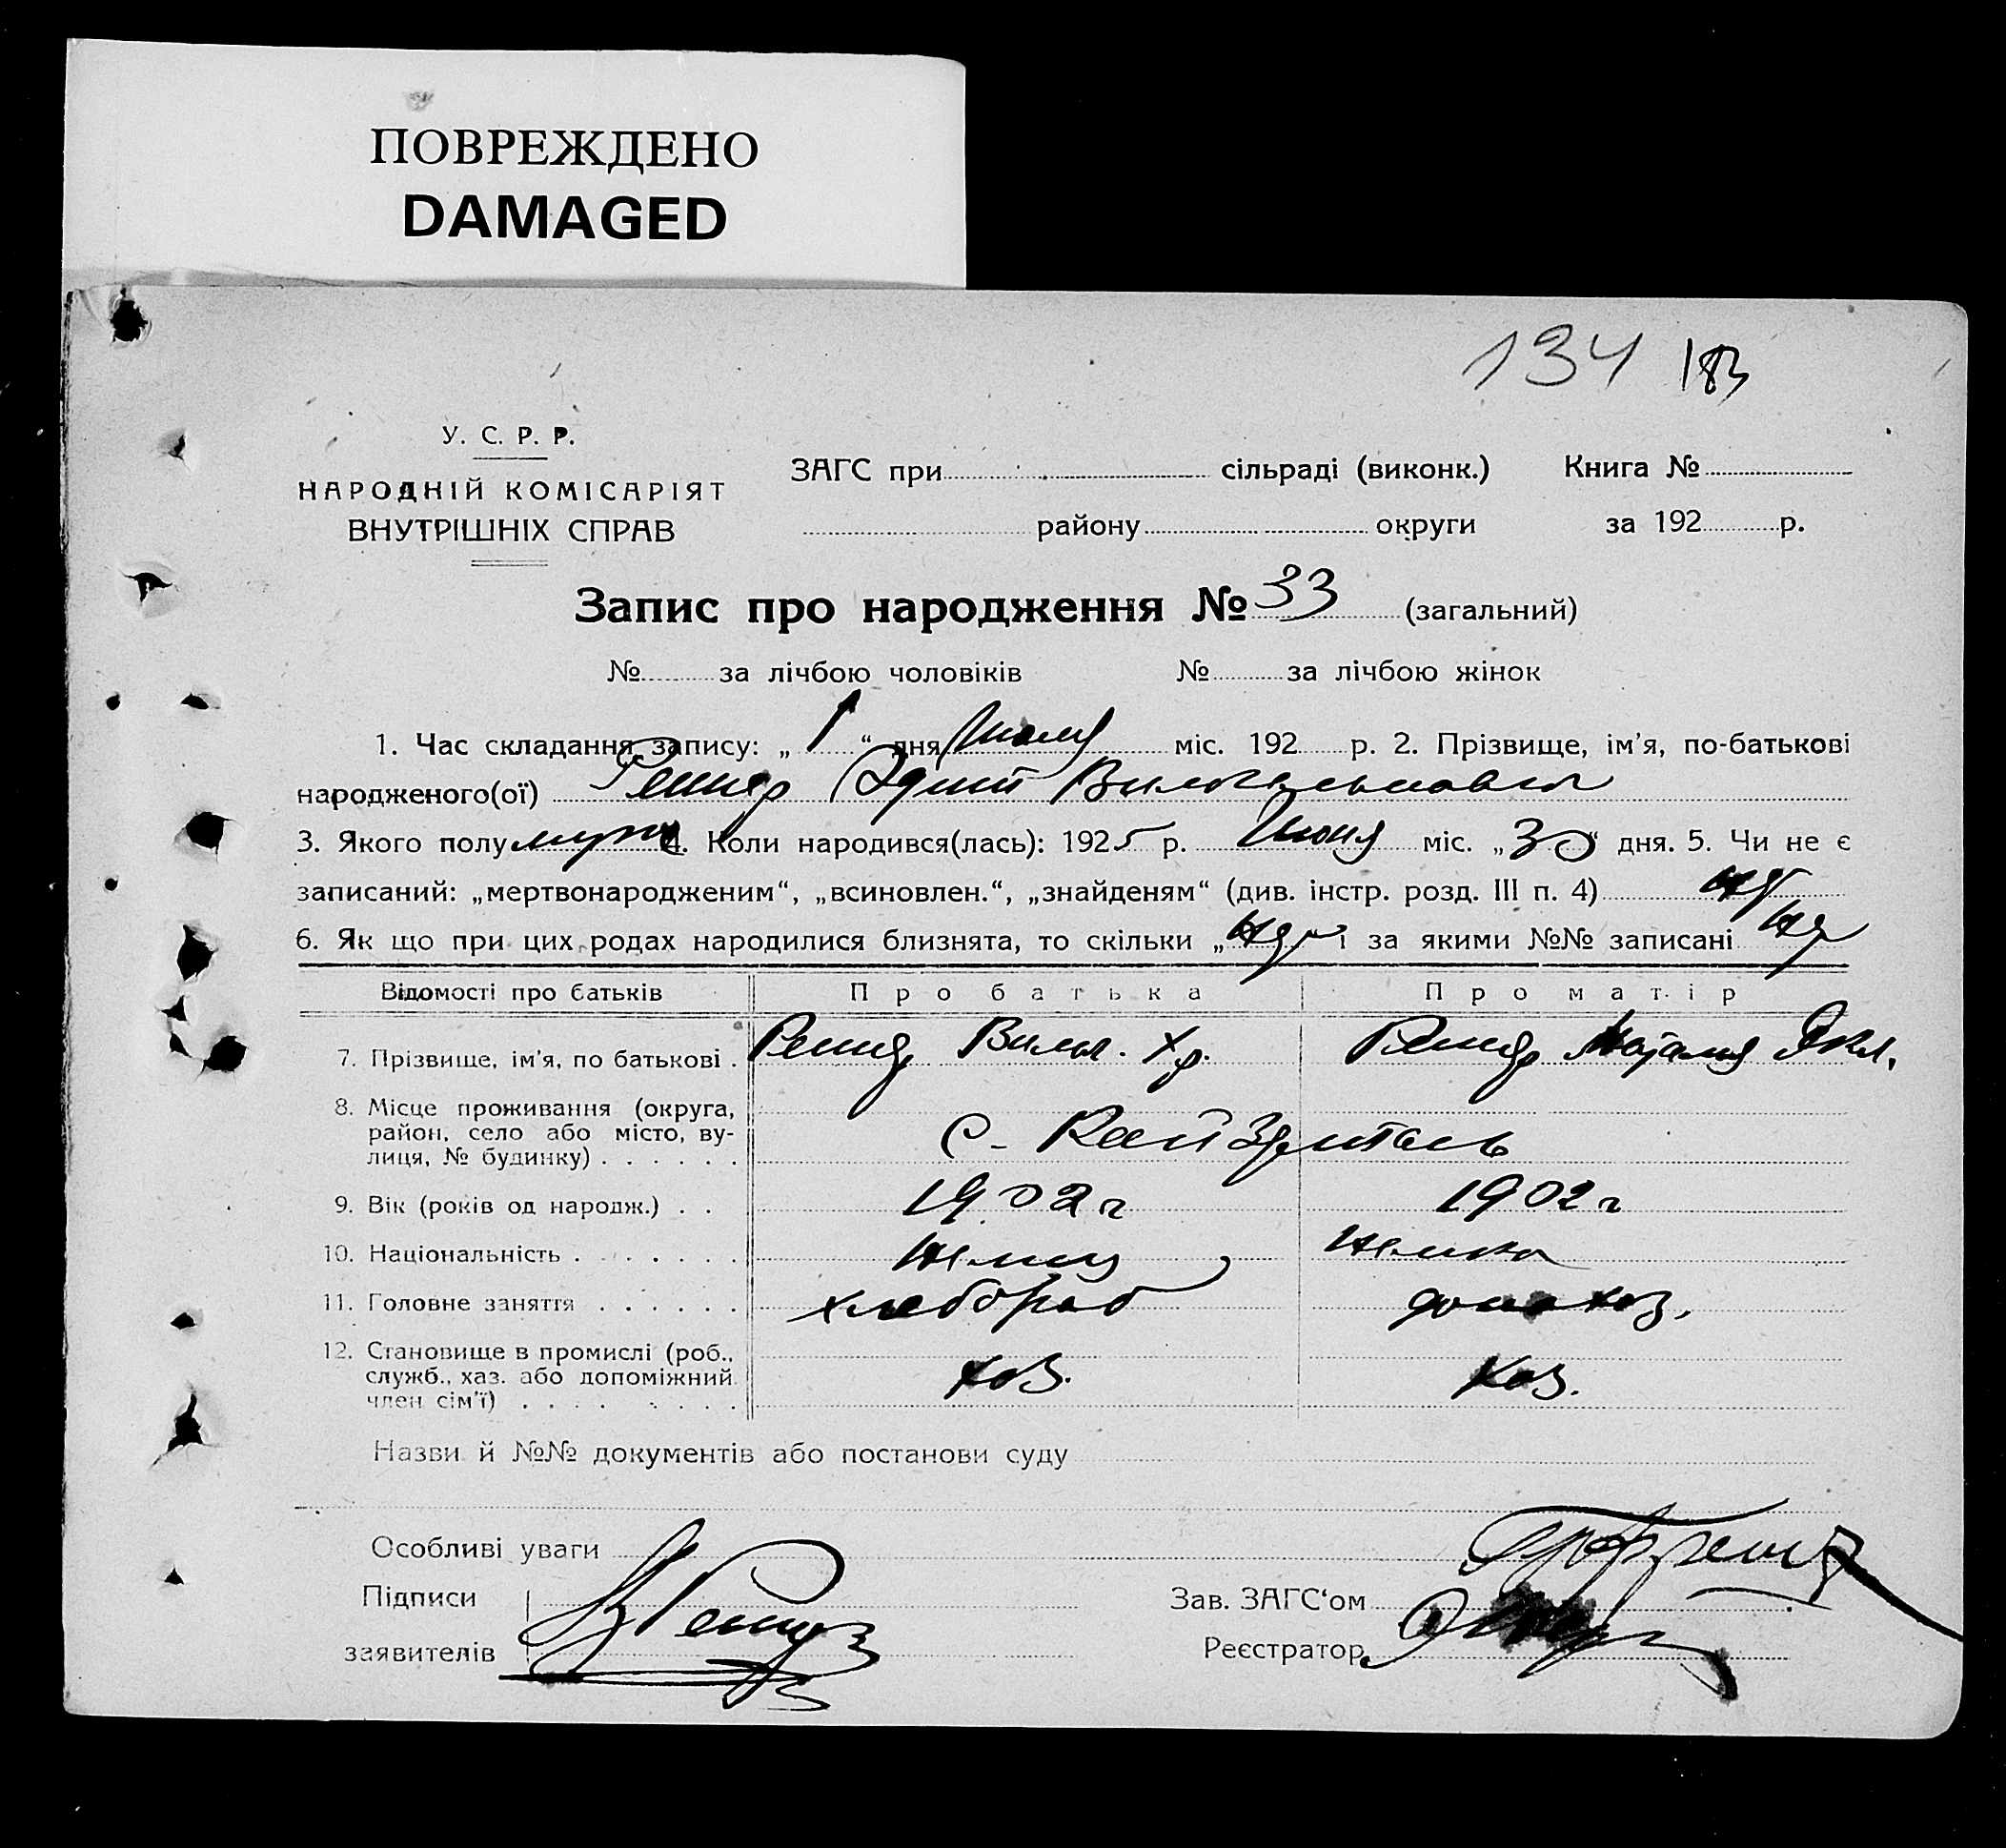 ПОВРЕЖДЕНО
DAMAGED
134 183
У. С. Р. Р.
НАРОДНІЙ КОМІСАРІЯТ
ВНУТРІШНІХ СПРАВ
ЗАГС при сільраді (виконк.) Книга №
району округи за 192 р.
Запис про народження № 33 (загальний)
№ за лічбою чоловіків № за лічбою жінок
1. Час складання запису: „ 1 “ дня Июля міс. 192 р. 2. Прізвище, ім'я, по-батькові
народженого(ої) Вильгельмович
3. Якого полу муж 4. Коли народився(лась): 1925 р. Июня міс. „30“ дня. 5. Чи не є
записаний: „мертвонародженим“, „всиновлен.“, „знайденям“ (див. інстр. розд. III п. 4) нет
6. Як що при цих родах народилися близнята, то скільки „ нет і за якими №№ записані нет
Відомості про батьків Про батька Про матір
7. Прізвище, ім'я, по батькові . Вильг. Хр. Наталия Якл.
8. Місце проживання (округа,
район, село або місто, ву-
лиця, № будинку) . . . . . . с. Кайзерталь
9. Вік (років од народж.) . . 1902 г 1902 г
10. Національність . . . . . . . немец немка
11. Головне заняття . . . . . . хлебороб домохоз.
12. Становище в промислі (роб.,
служб., хаз. або допоміжний
член сім'ї) . . . . . . . . хоз. хоз.
Назви й №№ документів або постанови суду
Особливі уваги
Підписи Зав. ЗАГС'ом
заявителів Реєстратор